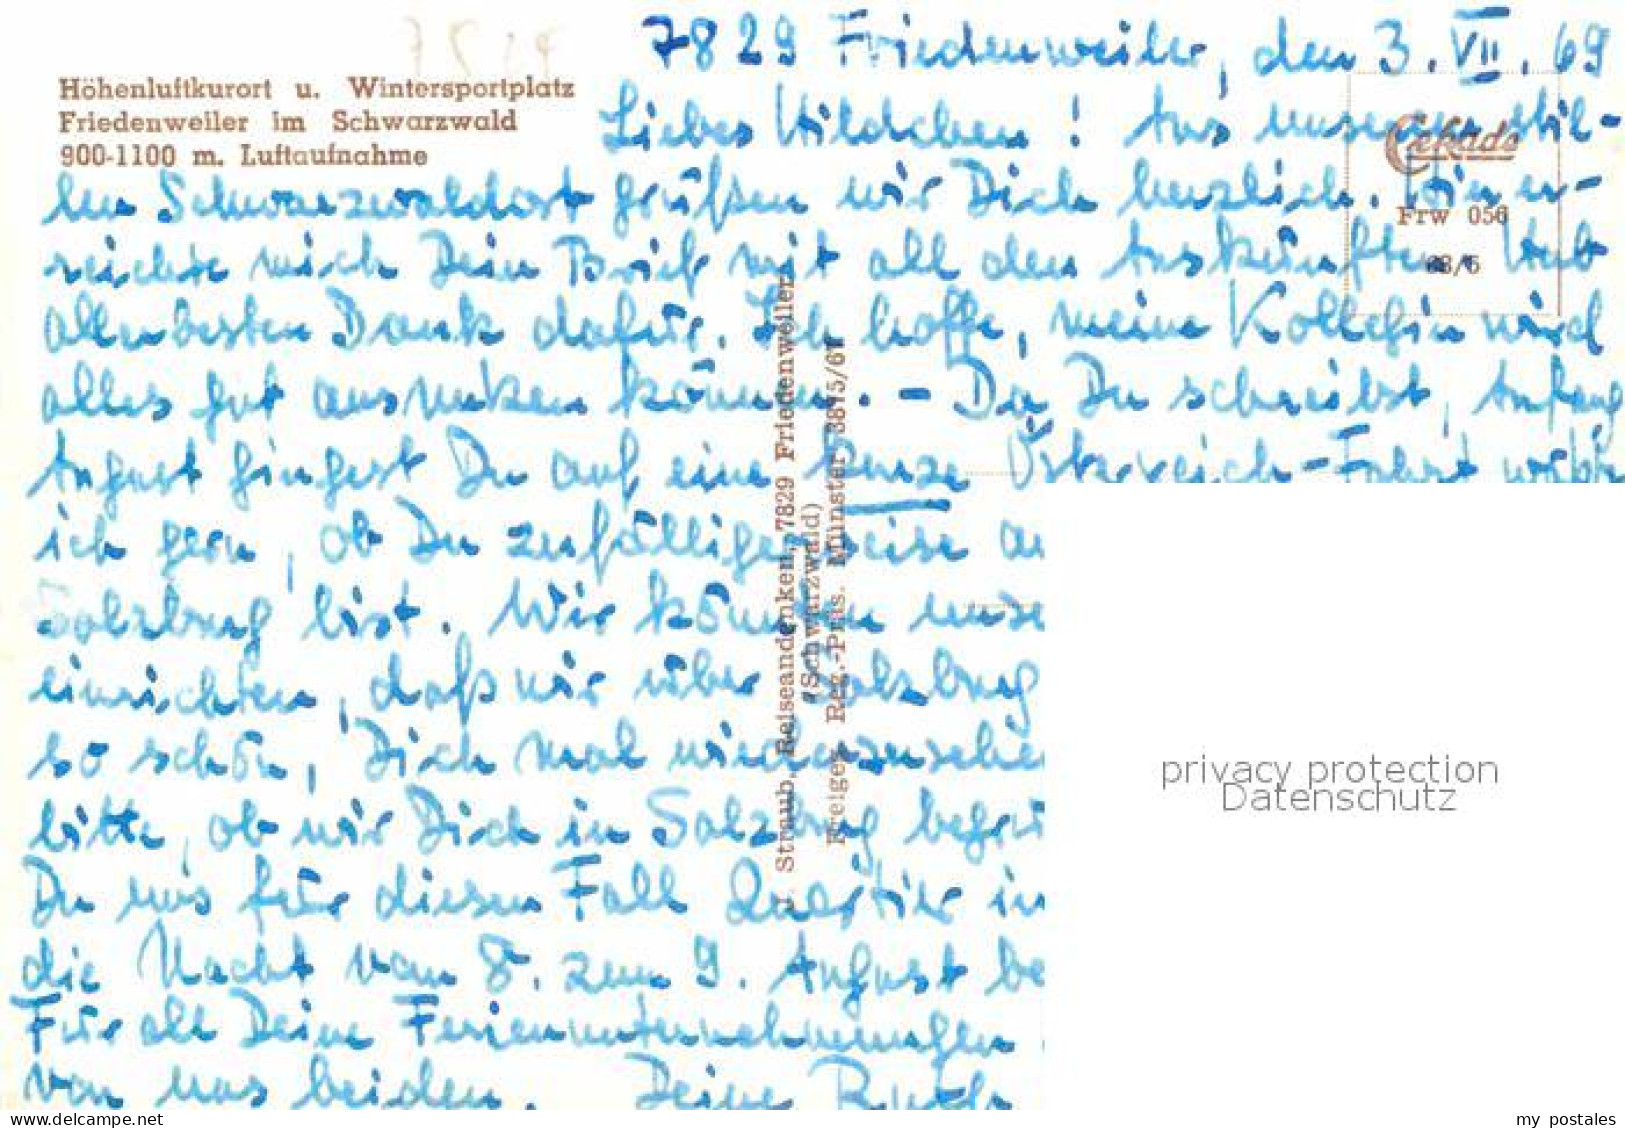 Höhenluftkurort u. Wintersportplatz
Friedenweiler im Schwarzwald
900-1100 m. Luftaufnahme
7829 Friedenweiler, den 3. VII. 69
Liebes Hildchen! Aus unserem stil-
len Schwarzwaldort grüßen wir Dich herzlich. Hier er-
reichte mich Dein Brief mit all den Auskünften. Hab
allerbesten Dank dafür. Ich hoffe, meine Kollegin wird
alles gut ausnutzen können. – Da Du schreibst, Anfang
August gingest Du auf eine kurze Österreich-Fahrt, wüßte
ich gern, ob Du zufälligerweise
Salzburg bist. Wir könnten
einrichten, daß wir über Salzburg
so schön, Dich mal wiederzusehen
bitte, ob wir Dich in Salzburg
Du uns für diesen Fall Quartier
die Nacht vom 8. zum 9. August be
Für all Deine Ferienunternehmungen
von uns beiden. Deine Ruth
Cekade
Frw 056
68/6
Straub, Reiseandenken, 7829 Friedenweiler
(Schwarzwald)
Freigeg. Reg.-Präs. Münster 3815/67
privacy protection
Datenschutz
delcampe.net
my_postales